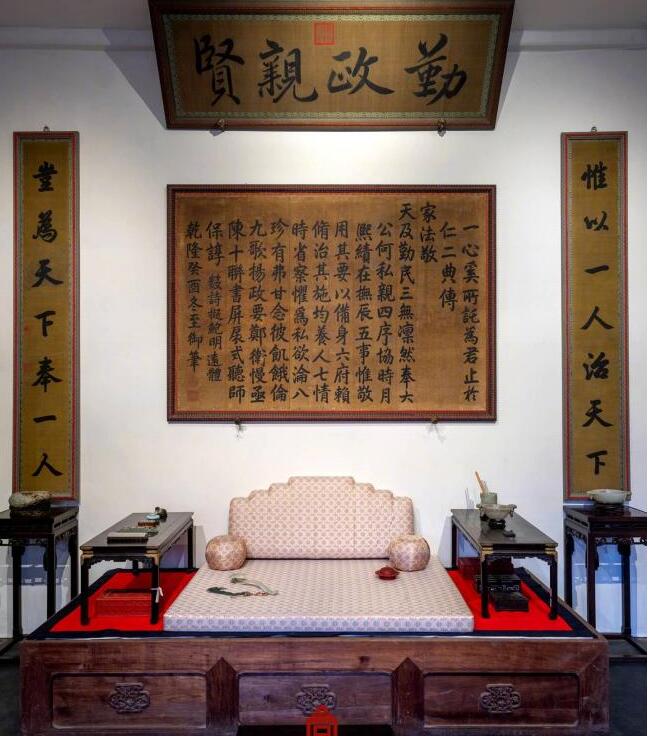 勤政親賢
惟以一人治天下
一心奚所託為君止於
仁二典傳
家法敬
天及勤民三無凜然奉大
公何私親四序協時月
熙績在撫辰五事惟敬
用其要以備身六府賴
脩治其施均養人七情
時省察懼為私欲淪八
珍有弗甘念彼飢餓倫
九歌揚政要鄭衛慢亟
陳十聯書屏扆式聽師
保諄 數詩擬鮑明遠體
乾隆癸酉冬至御筆
豈為天下奉一人